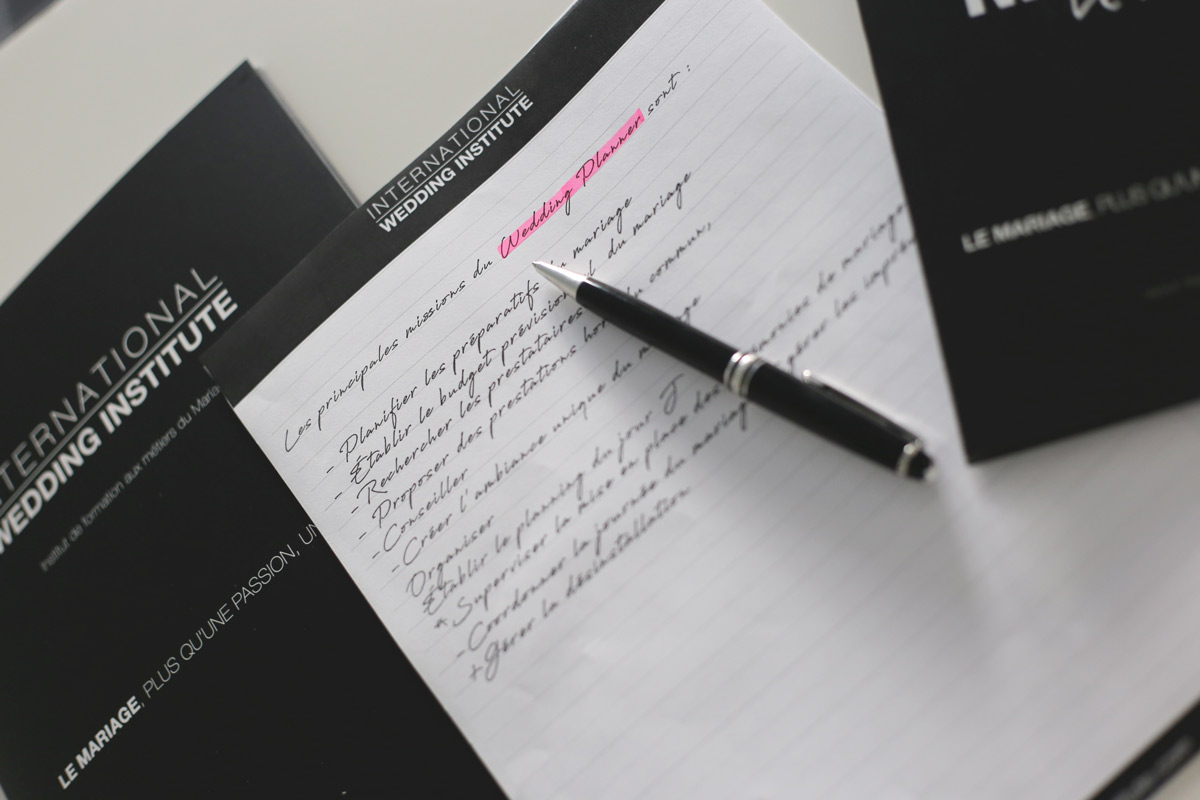 INTERNATIONAL
WEDDING INSTITUTE
Les principales missions du Wedding Planner sont :
- Planifier les préparatifs du mariage
- Établir le budget prévisionnel du mariage
- Rechercher les prestataires
- Proposer des prestations hors du commun,
- Conseiller
- Créer l'ambiance unique du mariage
Organiser
Établir le planning du jour J
+ Superviser la mise en place des
gérer les
- Coordonner la journée du mariage
+ Gérer la désinstallation
INTERNATIONAL
WEDDING INSTITUTE
Institut de formation aux métiers du Maria
LE MARIAGE, PLUS QU'UNE PASSION, UN
LE MARIAGE, PLUS QU'UN